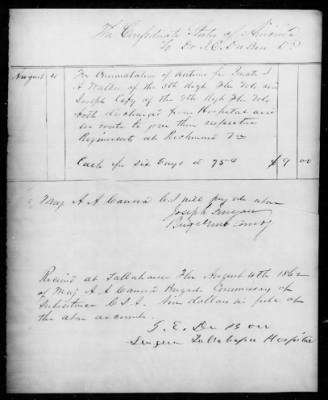 The Confederate States of America
To Dr G. E. De D.
August 10 For Commutation of Rations for Private J
A Walker of the 5th Regt Fla Vols and
Joseph of the 8th Regt Fla Vols
both discharged from Hospital and
en route to join their respective
Regiments at Richmond Va
Each for six days at 75c $9 00
Maj A A Canova A C S will pay the above
Joseph
Surgeon
Received at Tallahassee Fla August 10th 1862
of Maj A A Canova Commissary of
Subsistence C S A. Nine dollars in full of
the above account.
G. E. De
Surgeon Tallahassee Hospital